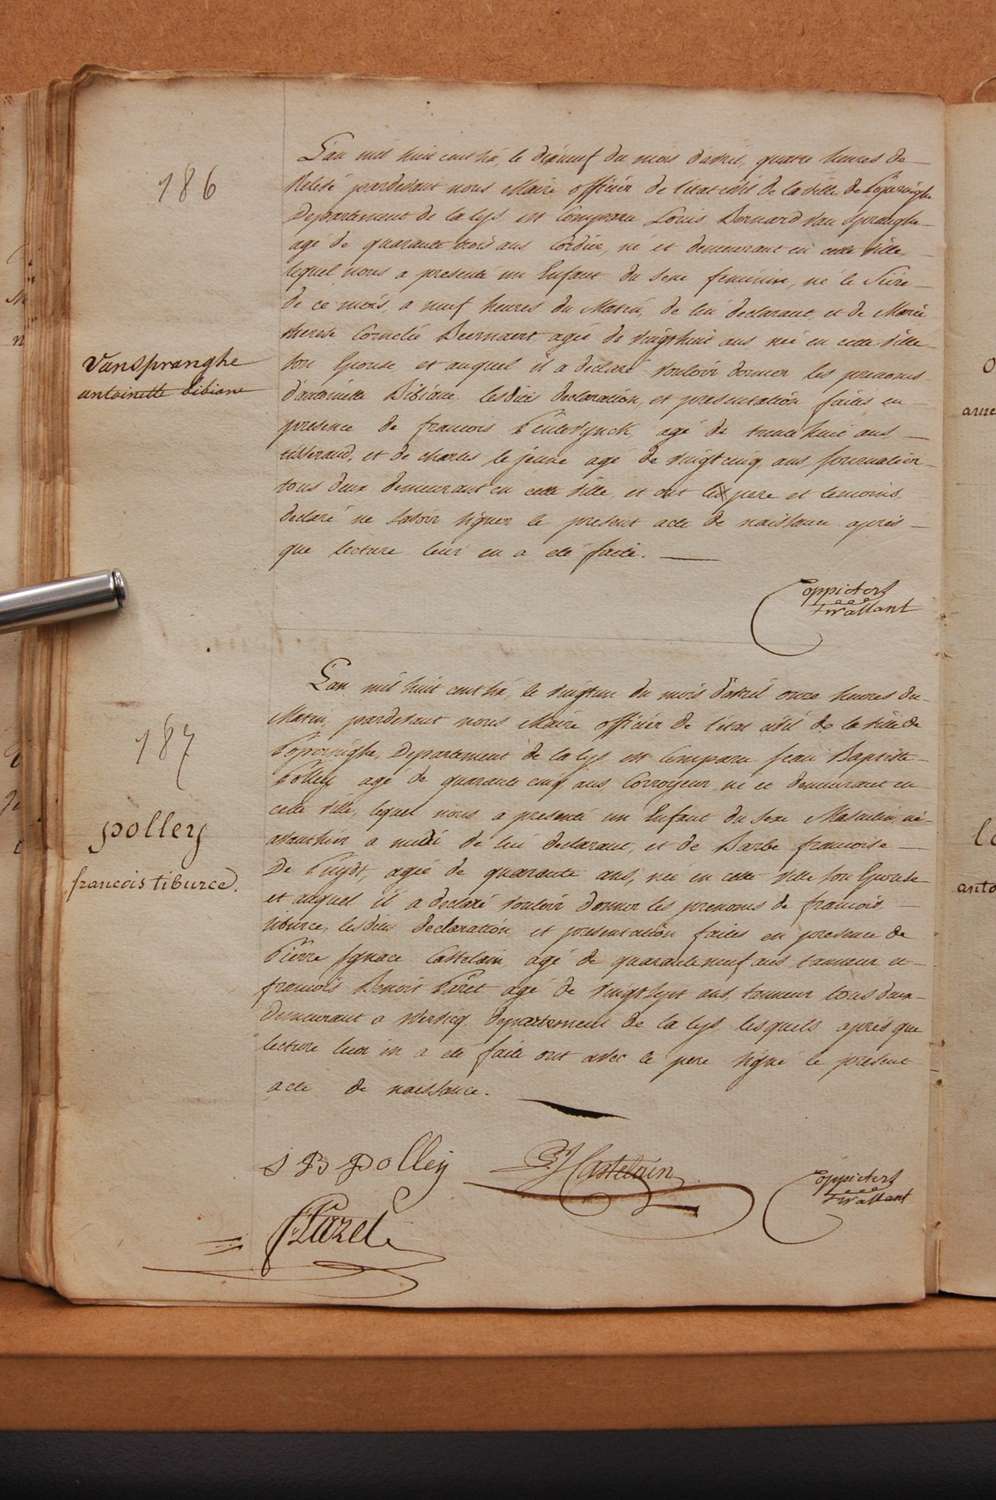 186
L'an mil huit cent dix, le dixneuf du mois d'avril, quatre heures de
Relevé pardevant nous Maire officier de l'etat civil de la ville de Poperinghe
Departement de la Lys est Comparu Louis Bernard Van Spranghe
agé de quarante trois ans Cordier, né et demeurant en cette ville,
lequel nous a presenté un Enfant du sexe feminin, né le
de ce mois, a neuf heures du Matin, de lui declarant et de Marie
therese Cornelie Beernaert agée de vingthuit ans née en cette ville
son Epouse et auquel il a declaré vouloir donner les prenoms
d'antoinette Bibiane lesdits declaration et presentation faites en
presence de francois agé de trente huit ans
tisserand, et de charles le jeune agé de vingt cinq ans journalier
tous deux demeurant en cette ville et ont les pere et temoins
declaré ne savoir signer le present acte de naissance après
que lecture leur en a été faite.
Vanspranghe
antoinette bibiane
Coppieters
t'Wallant
187
L'an mil huit cent dix le vingtun du mois d'avril onze heures du
Matin, pardevant nous Maire officier de l'etat civil de la ville de
Poperinghe Departement de la Lys est Comparu Jean Baptiste
Polley agé de quarante cinq ans Corroyeur né et demeurant en
cette ville, lequel nous a presenté un Enfant du sexe Masculin, né
avanthier a midi de lui declarant, et de Barbe francoise
De Puydt, agée de quarante ans, née en cette ville son Epouse
et auquel il a declaré vouloir donner les prenoms de francois
tiburce, lesdits declaration et presentation faites en presence de
Pierre Ignace Castelain agé de quaranteneuf ans tanneur et
francois Benoit Paret agé de vingtsept ans, tanneur tous deux
demeurant a Wervicq departement de la Lys lesquels après que
lecture leur en a été faite ont avec le pere signé le present
acte de naissance.
polley
francois tiburce.
J B polley
P J Castelain
Coppieters
t'Wallant
f Paret